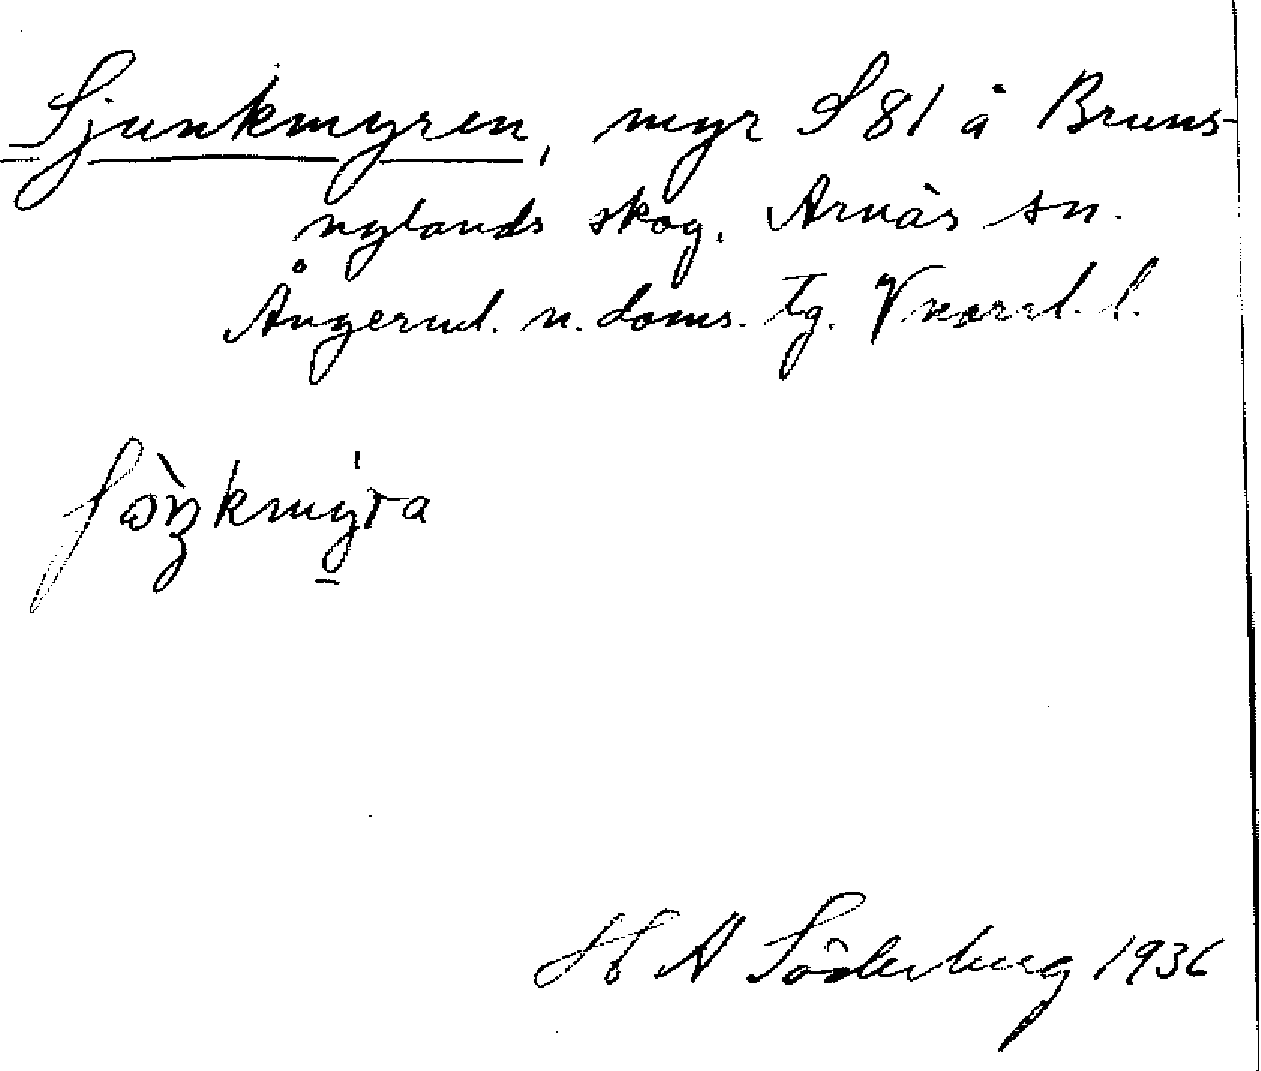 Sjunkmyren, myr S 81 å Bruns-
nylands skog, Arnäs sn.
Ångerml. n. doms. tg. Vnorrl. l.
ʃɷ̀ŋkmýra
H A Söderberg 1936